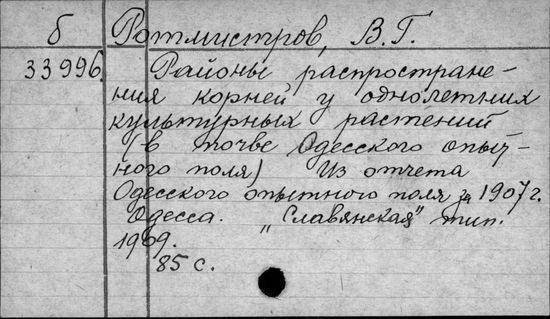 б Ротмистров, В.Г.
33996. Районы распростране-
ния корней у однолетних
культурных растений
(в почве Одесского опыт-
ного поля) Из отчета
Одесского опытного поля за 1907г.
Одесса. "Славянская" тип.
1909.
85 с.